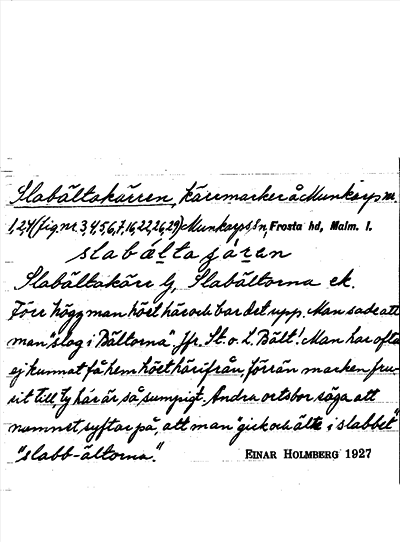 Slabältakärren, kärrmarker å Munkarps nr.
1,2,4 (fig. nr. 3,4,5,6,7,16,22,26,29) Munkarps sn, Frosta hd, Malm. l.
slabältajáren
Slabältakärr G, Slabältorna ek.
Förr högg man höet här och bar det upp. Man sade att
man "slog i Bältorna". Jfr. St. o. L. Bält! Man har ofta
ej kunnat få hem höet härifrån, förrän marken fru-
sit till, ty här är så sumpigt. Andra ortsbor säga att
namnet syftar på, att man "gick och älte i slabbet"
"slabb-ältorna".
EINAR HOLMBERG 1927